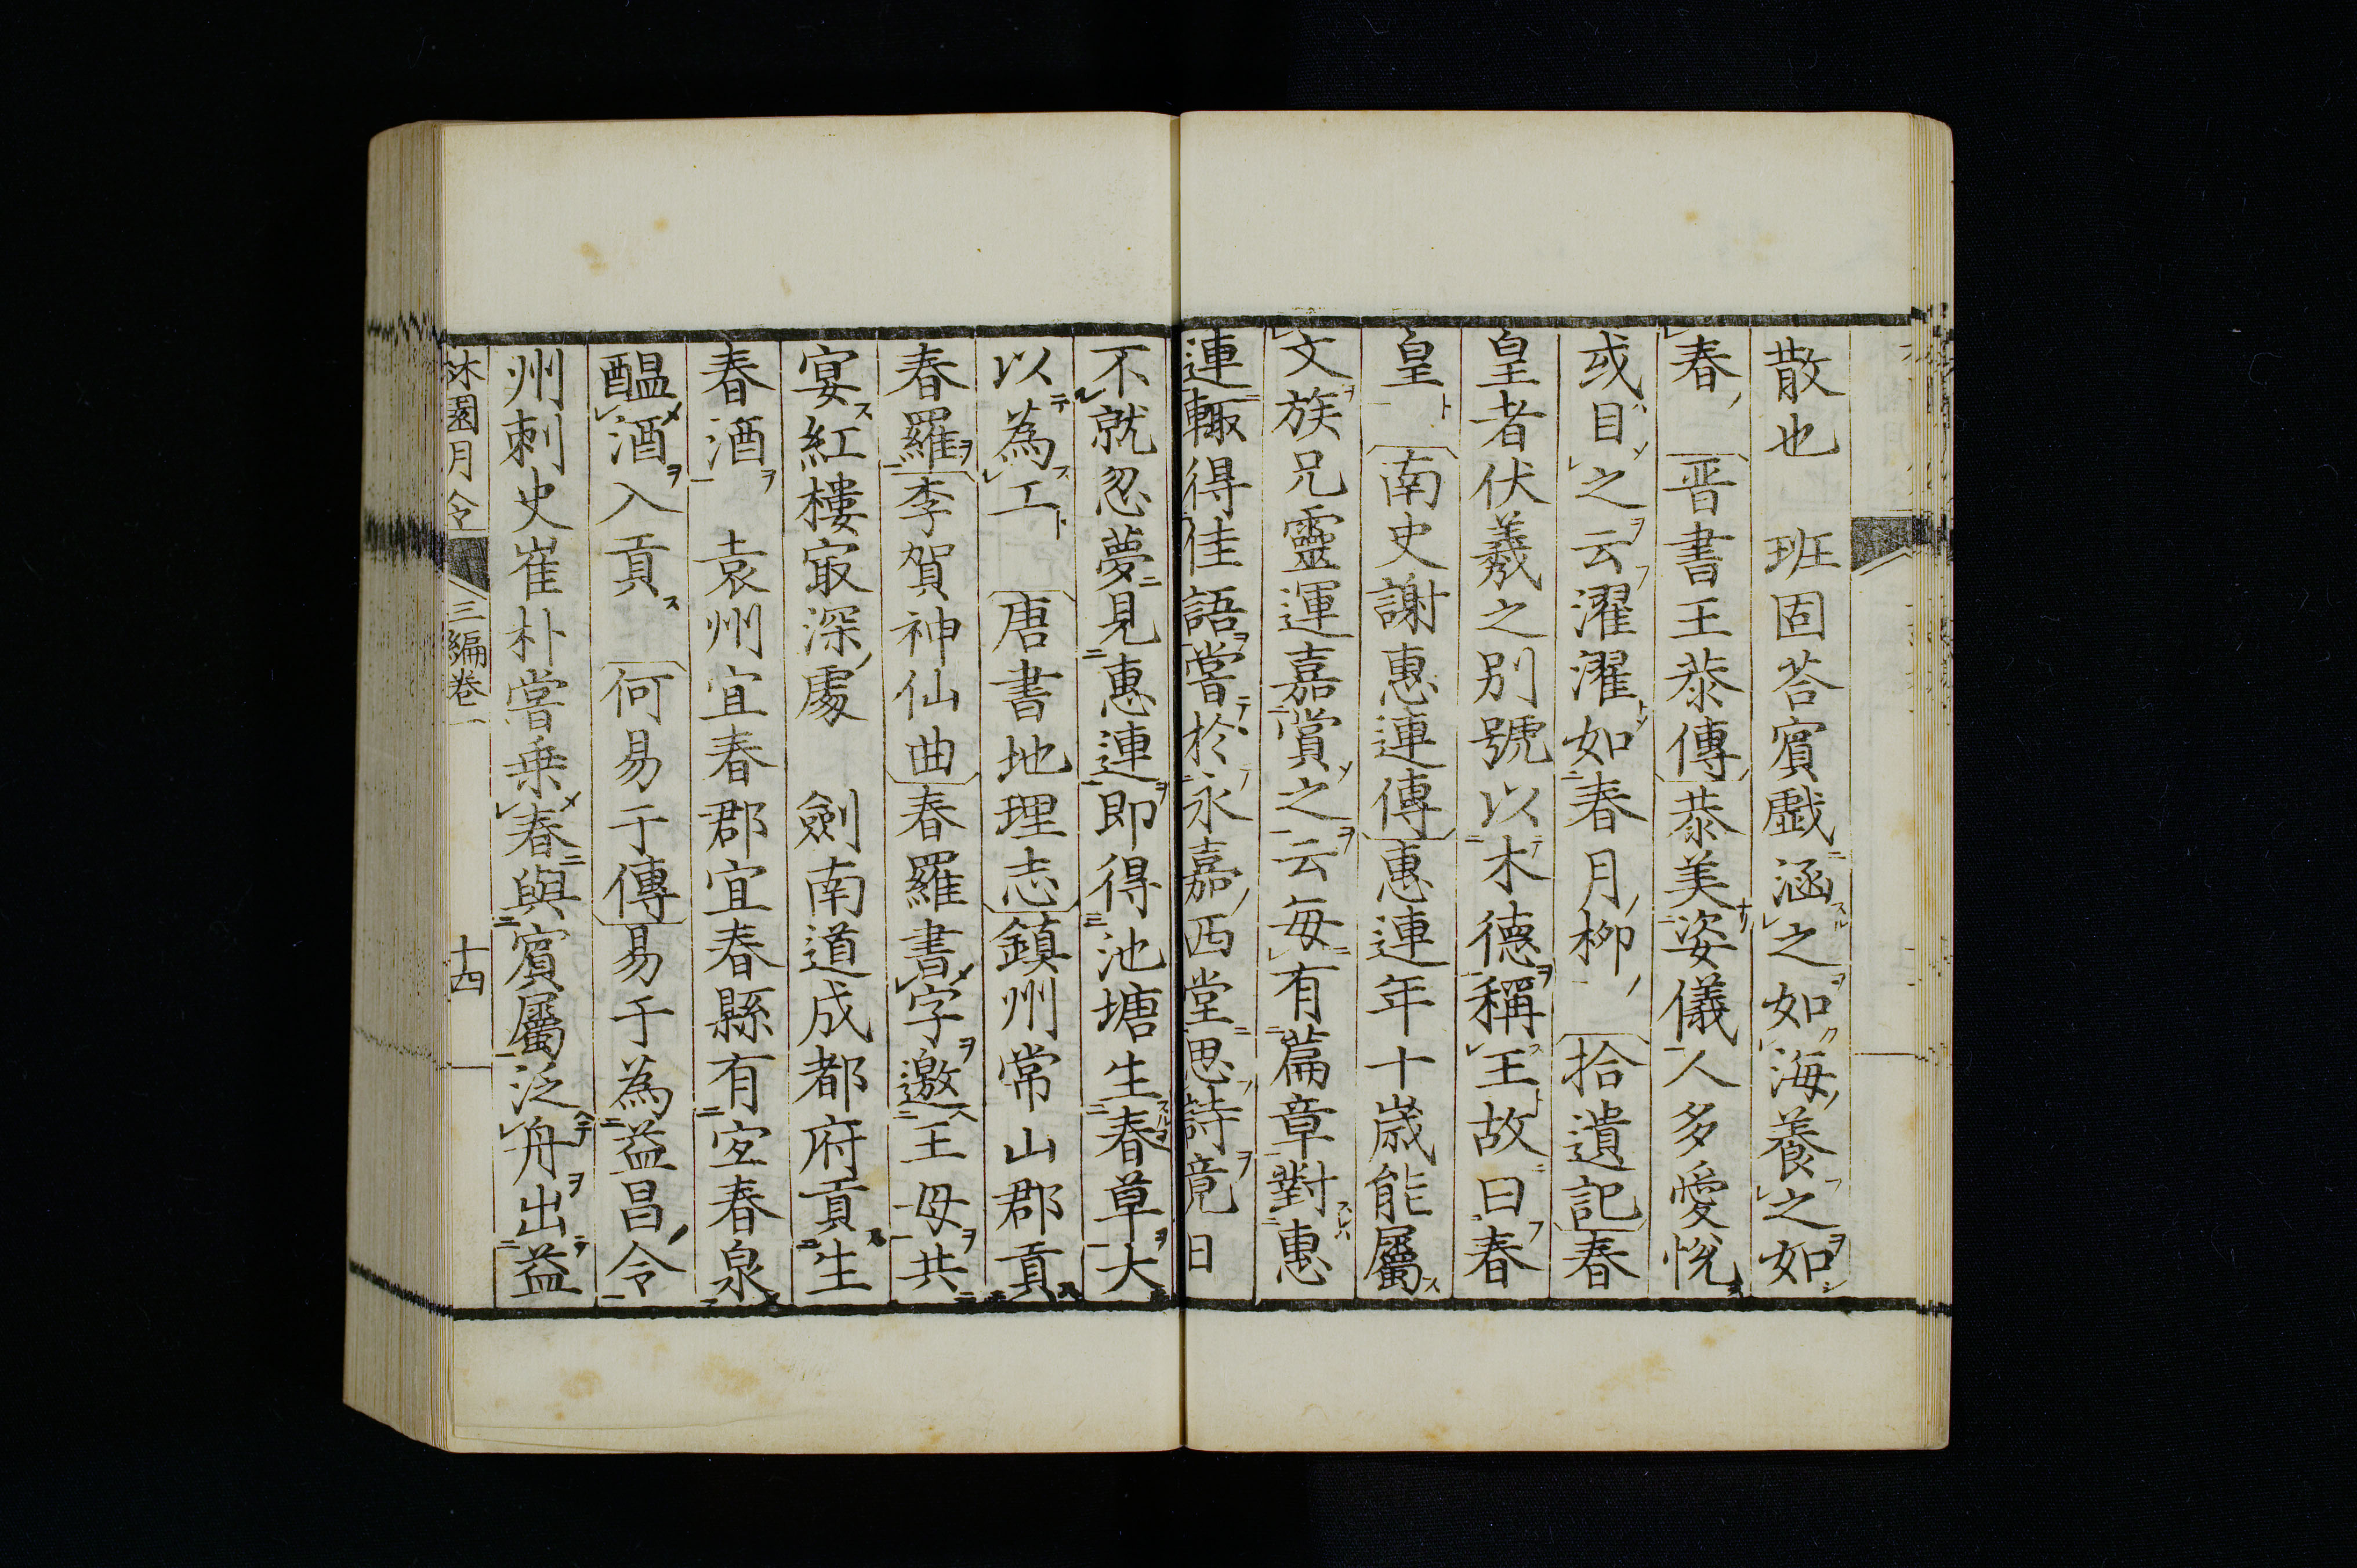 散也　班固荅賓戯涵之如海養之如
春　晋書王恭傳恭美姿儀人多愛悅
或目之云濯濯如春月柳　拾遺記春
皇者伏羲之別號以木德稱王故曰春
皇　南史謝惠連傳惠連年十歳能屬
文族兄靈運嘉賞之云每有篇章對惠
連輙得佳語嘗於永嘉西堂思詩竟日
不就忽夢見惠連即得池塘生春草大
以為工　唐書地理志鎮州常山郡貢
春羅李賀神仙曲春羅書字邀王母共
宴紅樓㝡深處　劍南道成都府貢生
春酒　袁州宜春郡宜春縣有宜春泉
醞酒入貢　何易于傳易于為益昌令
州刺史崔朴嘗乗春與賓屬泛舟出益
沐園月令　三編卷一　十四